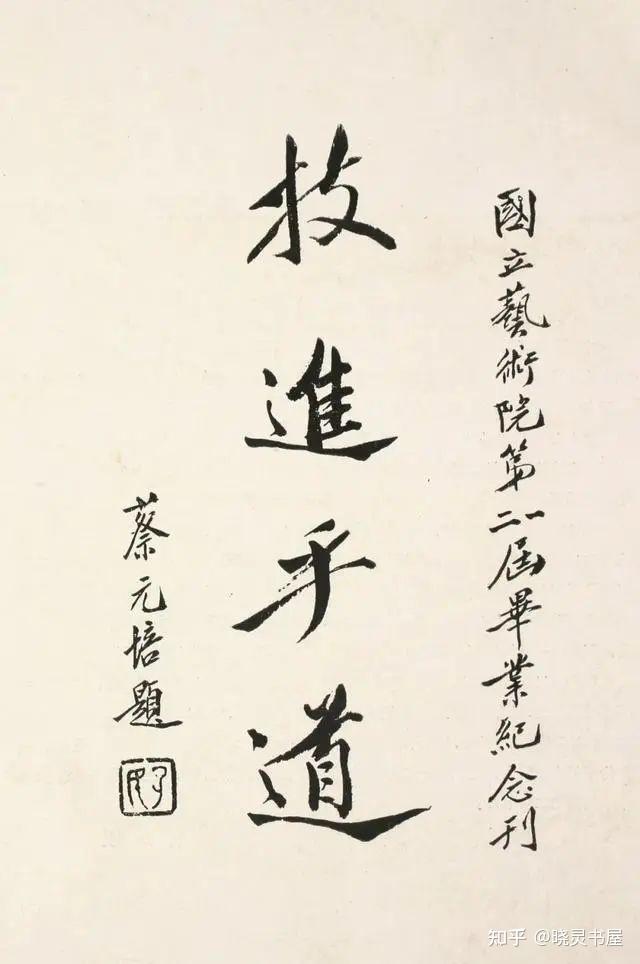 國立藝術院第二届畢業紀念刊
技進乎道
蔡元培題
孑民
知乎 @晓灵书屋